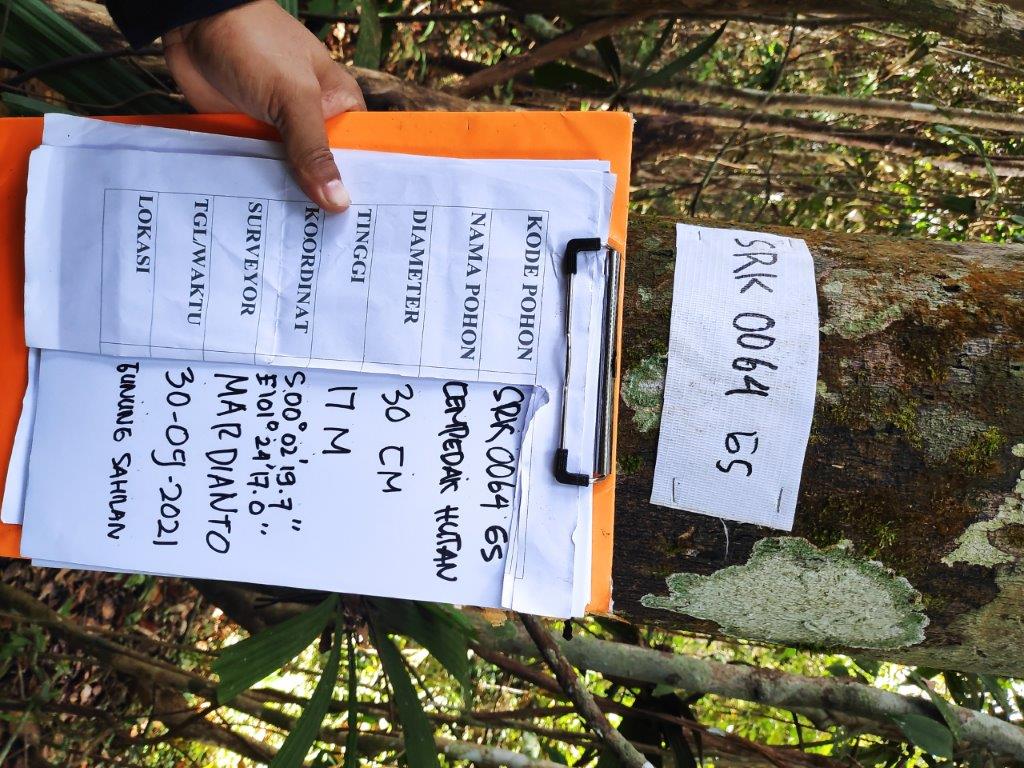 SRK 0064 GS
KODE POHON SRK 0064 GS
NAMA POHON CEMPEDAK HUTAN
DIAMETER 30 CM
TINGGI 17 M
KOORDINAT S.00°02'19.7"
E101°24'17.0"
SURVEYOR MARDIANTO
TGL/WAKTU 30-09-2021
LOKASI GUNUNG SAHILAN